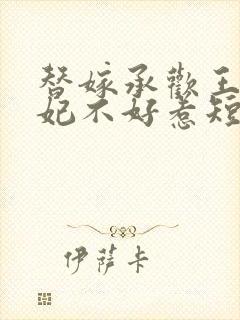 替嫁承歡王
妃不好惹短
伊薩卡